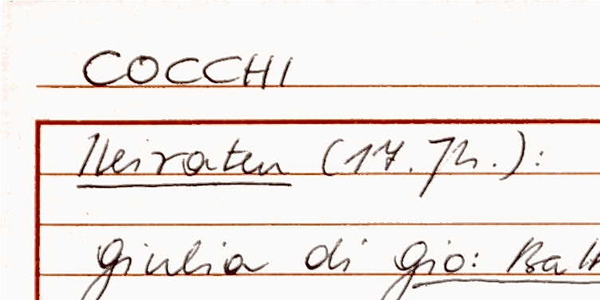 COCCHI
Heiraten (17. Jh.):
Giulia di Gio: Batt